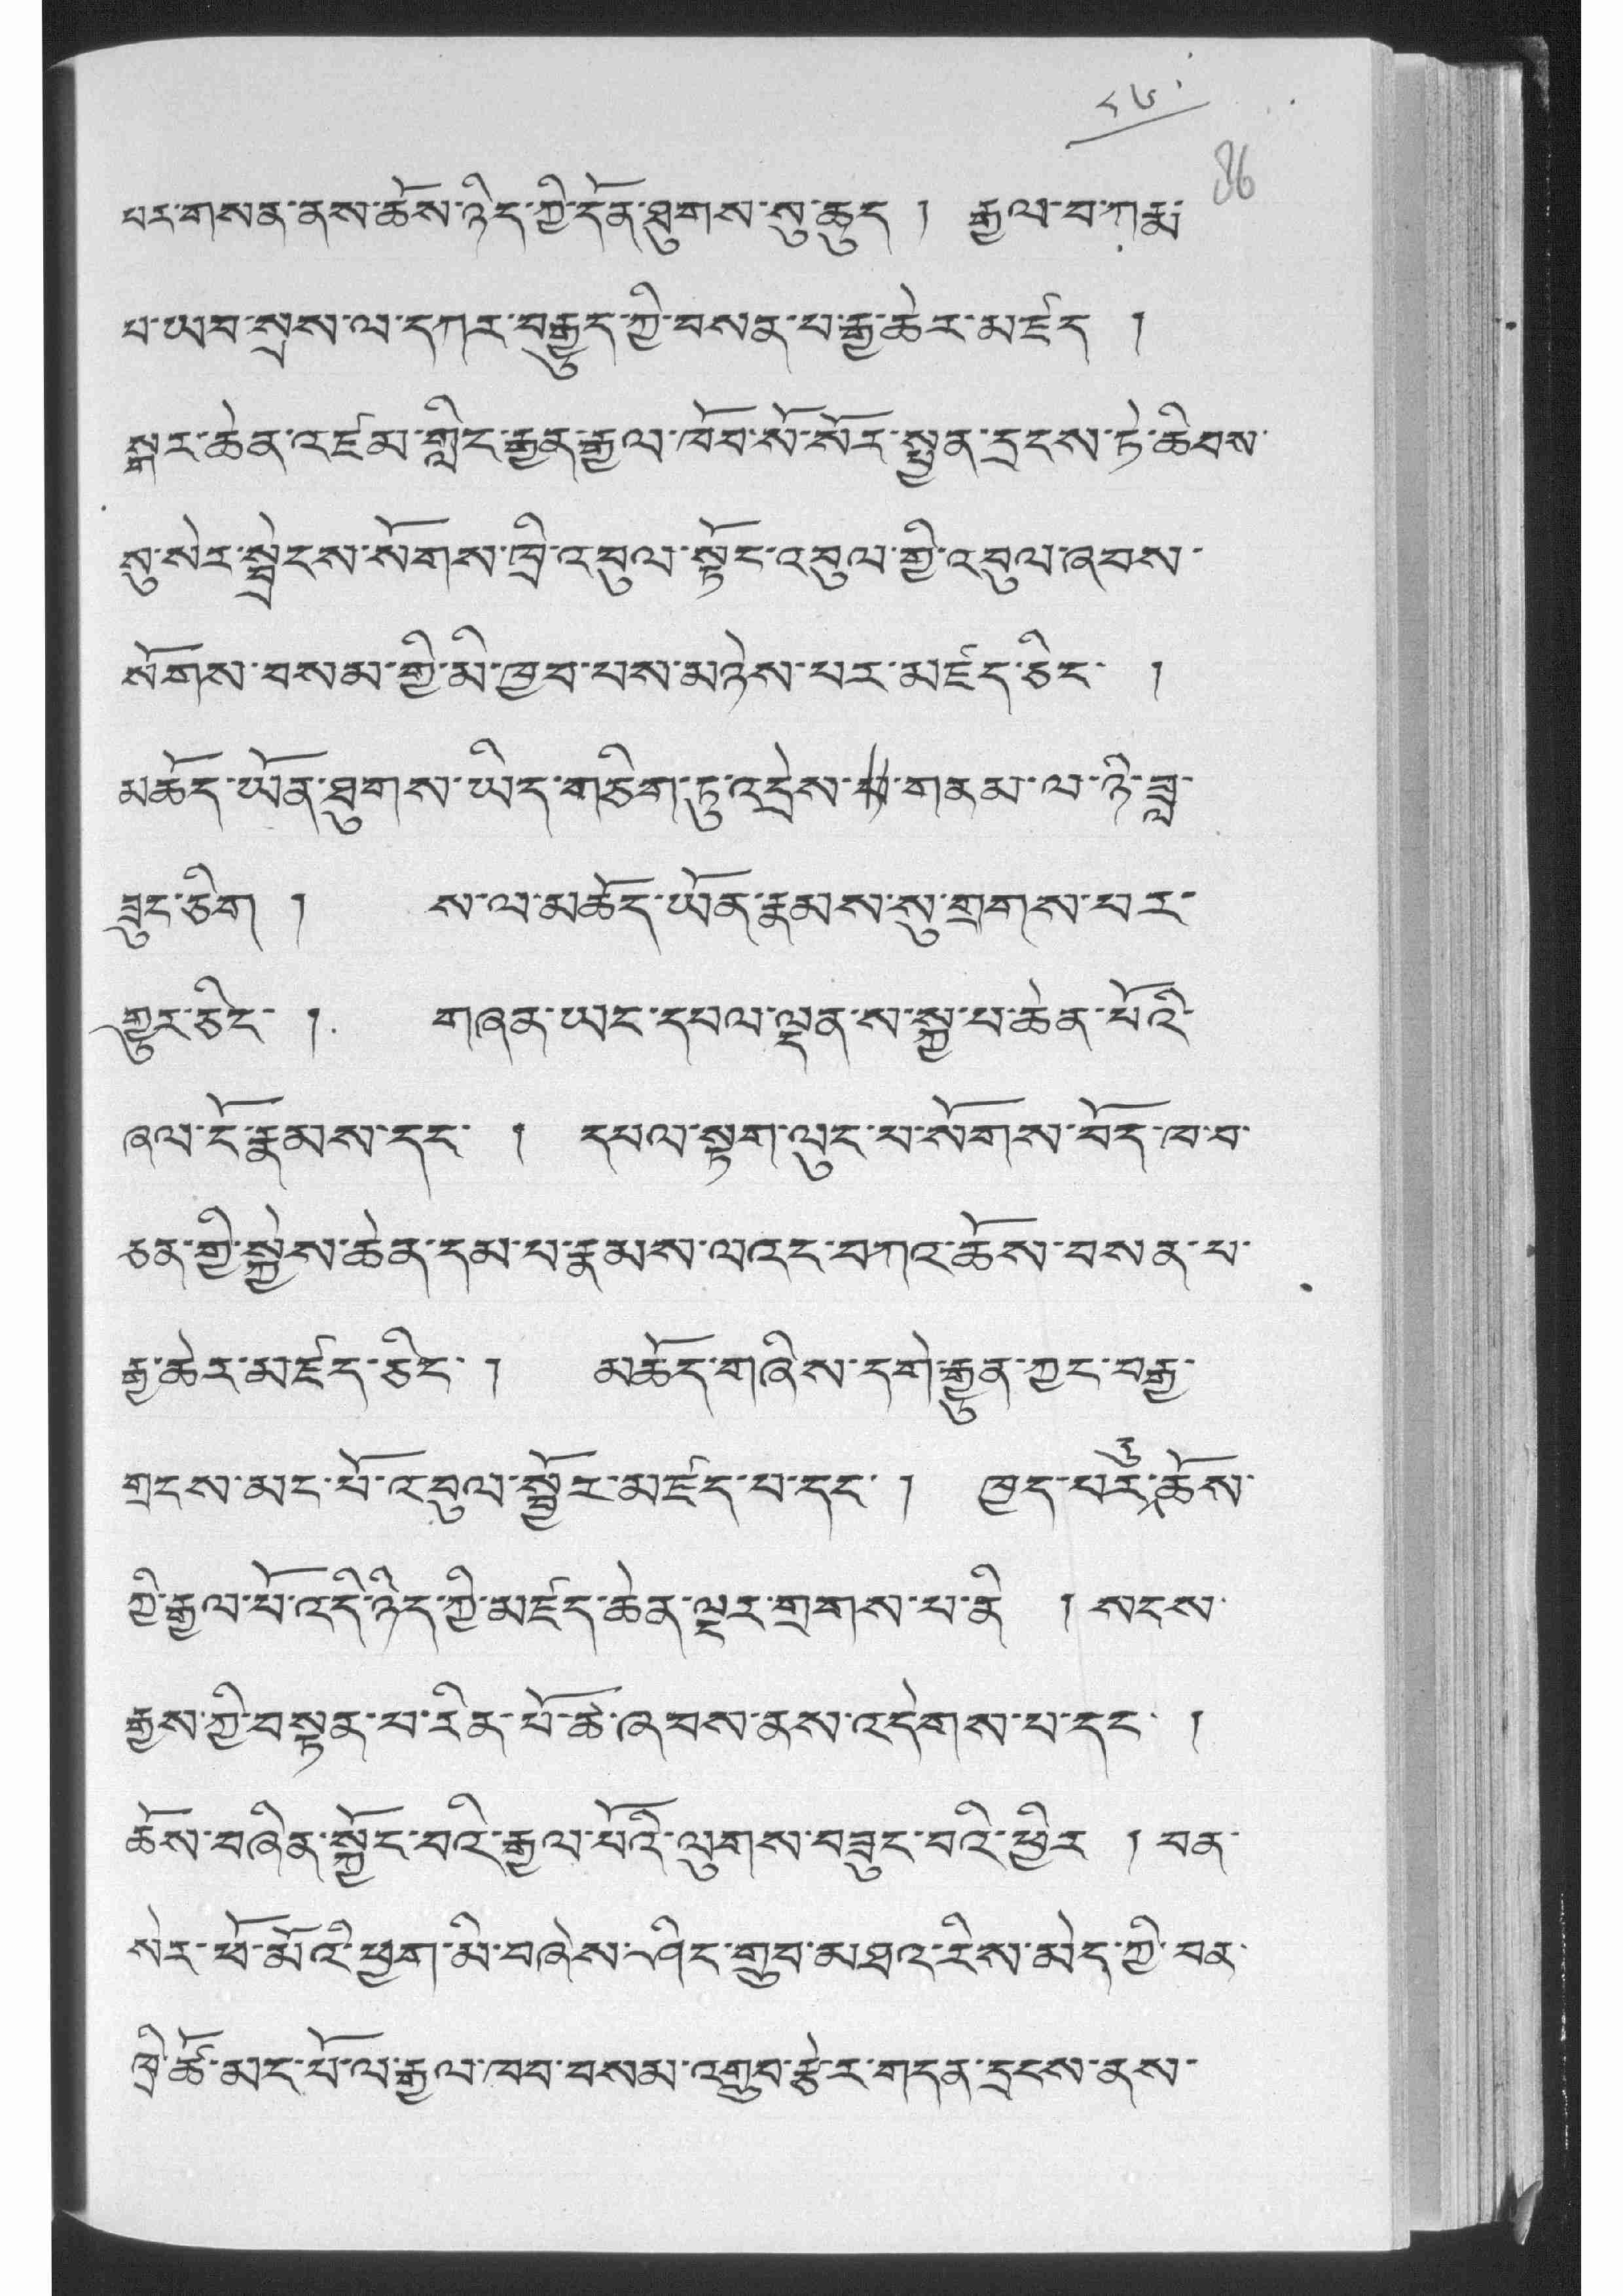 ༨༦
36
པར་གསན་ནས་ཆོས་ཉིད་ཀྱི་དོན་ཐུགས་སུ་ཆུད ། རྒྱལ་བ་ཀརྨ་
པ་ཡབ་སྲས་ལ་དཀར་བརྒྱུད་ཀྱི་བསན་པ་རྒྱ་ཆེར་མཛད །
སྒར་ཆེན་འཛམ་གླིང་རྒྱན་རྒྱལ་ཁོབ་སོ་སོར་སྤྱན་དྲངས་ཏེ་ཆིབས་
སུ་སེར་སྦྲེངས་སོགས་ཁྲི་འབུལ་སྟོང་འབུལ་གྱི་འབུལ་ཞབས་
སོགས་བསམ་གྱི་མི་ཁྱབ་པས་མཉེས་པར་མཛད་ཅིང་ །
མཆོད་ཡོན་ཐུགས་ཡིད་གཅིག་ཏུ་འདྲེས་ གནམ་ལ་ཉི་ཟླ་
ཟུང་ཅིག ། ས་ལ་མཆོད་ཡོན་རྣམས་སུ་གྲགས་པར་
གྱུར་ཅིང་ ། གཞན་ཡང་དཔལ་ལྡན་ས་སྐྱ་པ་ཆེན་པོའི་
ཞལ་ངོ་རྣམས་དང་ ། དཔལ་སྟག་ལུང་པ་སོགས་བོད་ཁ་བ་
ཅན་གྱི་སྐྱེས་ཆེན་དམ་པ་རྣམས་ལའང་བཀའ་ཆོས་བསན་པ་
རྒྱ་ཆེར་མཛད་ཅིང་ ། མཆོད་གཞིས་དགེ་རྒྱུན་ཀྱང་བརྒྱ་
གྲངས་མང་པོ་འབུལ་སྦྱོར་མཛད་པ་དང་ ། ཁྱད་པར་ཆོས་
ཀྱི་རྒྱལ་པོ་འདི་ཉིད་ཀྱི་མཛད་ཆེན་ལྔར་གྲགས་པ་ནི ། སངས་
རྒྱས་ཀྱི་བསྟན་པ་རིན་པོ་ཆེ་ཞབས་ནས་འདེགས་པ་དང་ །
ཆོས་བཞིན་སྐྱོང་བའི་རྒྱལ་པོའི་ལུགས་བཟུང་བའི་ཕྱིར ། བན་
སེར་ཕོ་མོའི་ཕྱག་མི་བཞེས་ཤིང་གྲུབ་མཐའ་རིས་མེད་ཀྱི་བན་
ཁྲི་ཚོ་མང་པོ་ལ་རྒྱལ་ཁབ་བསམ་འགྲུབ་རྩེར་གདན་དྲངས་ནས་